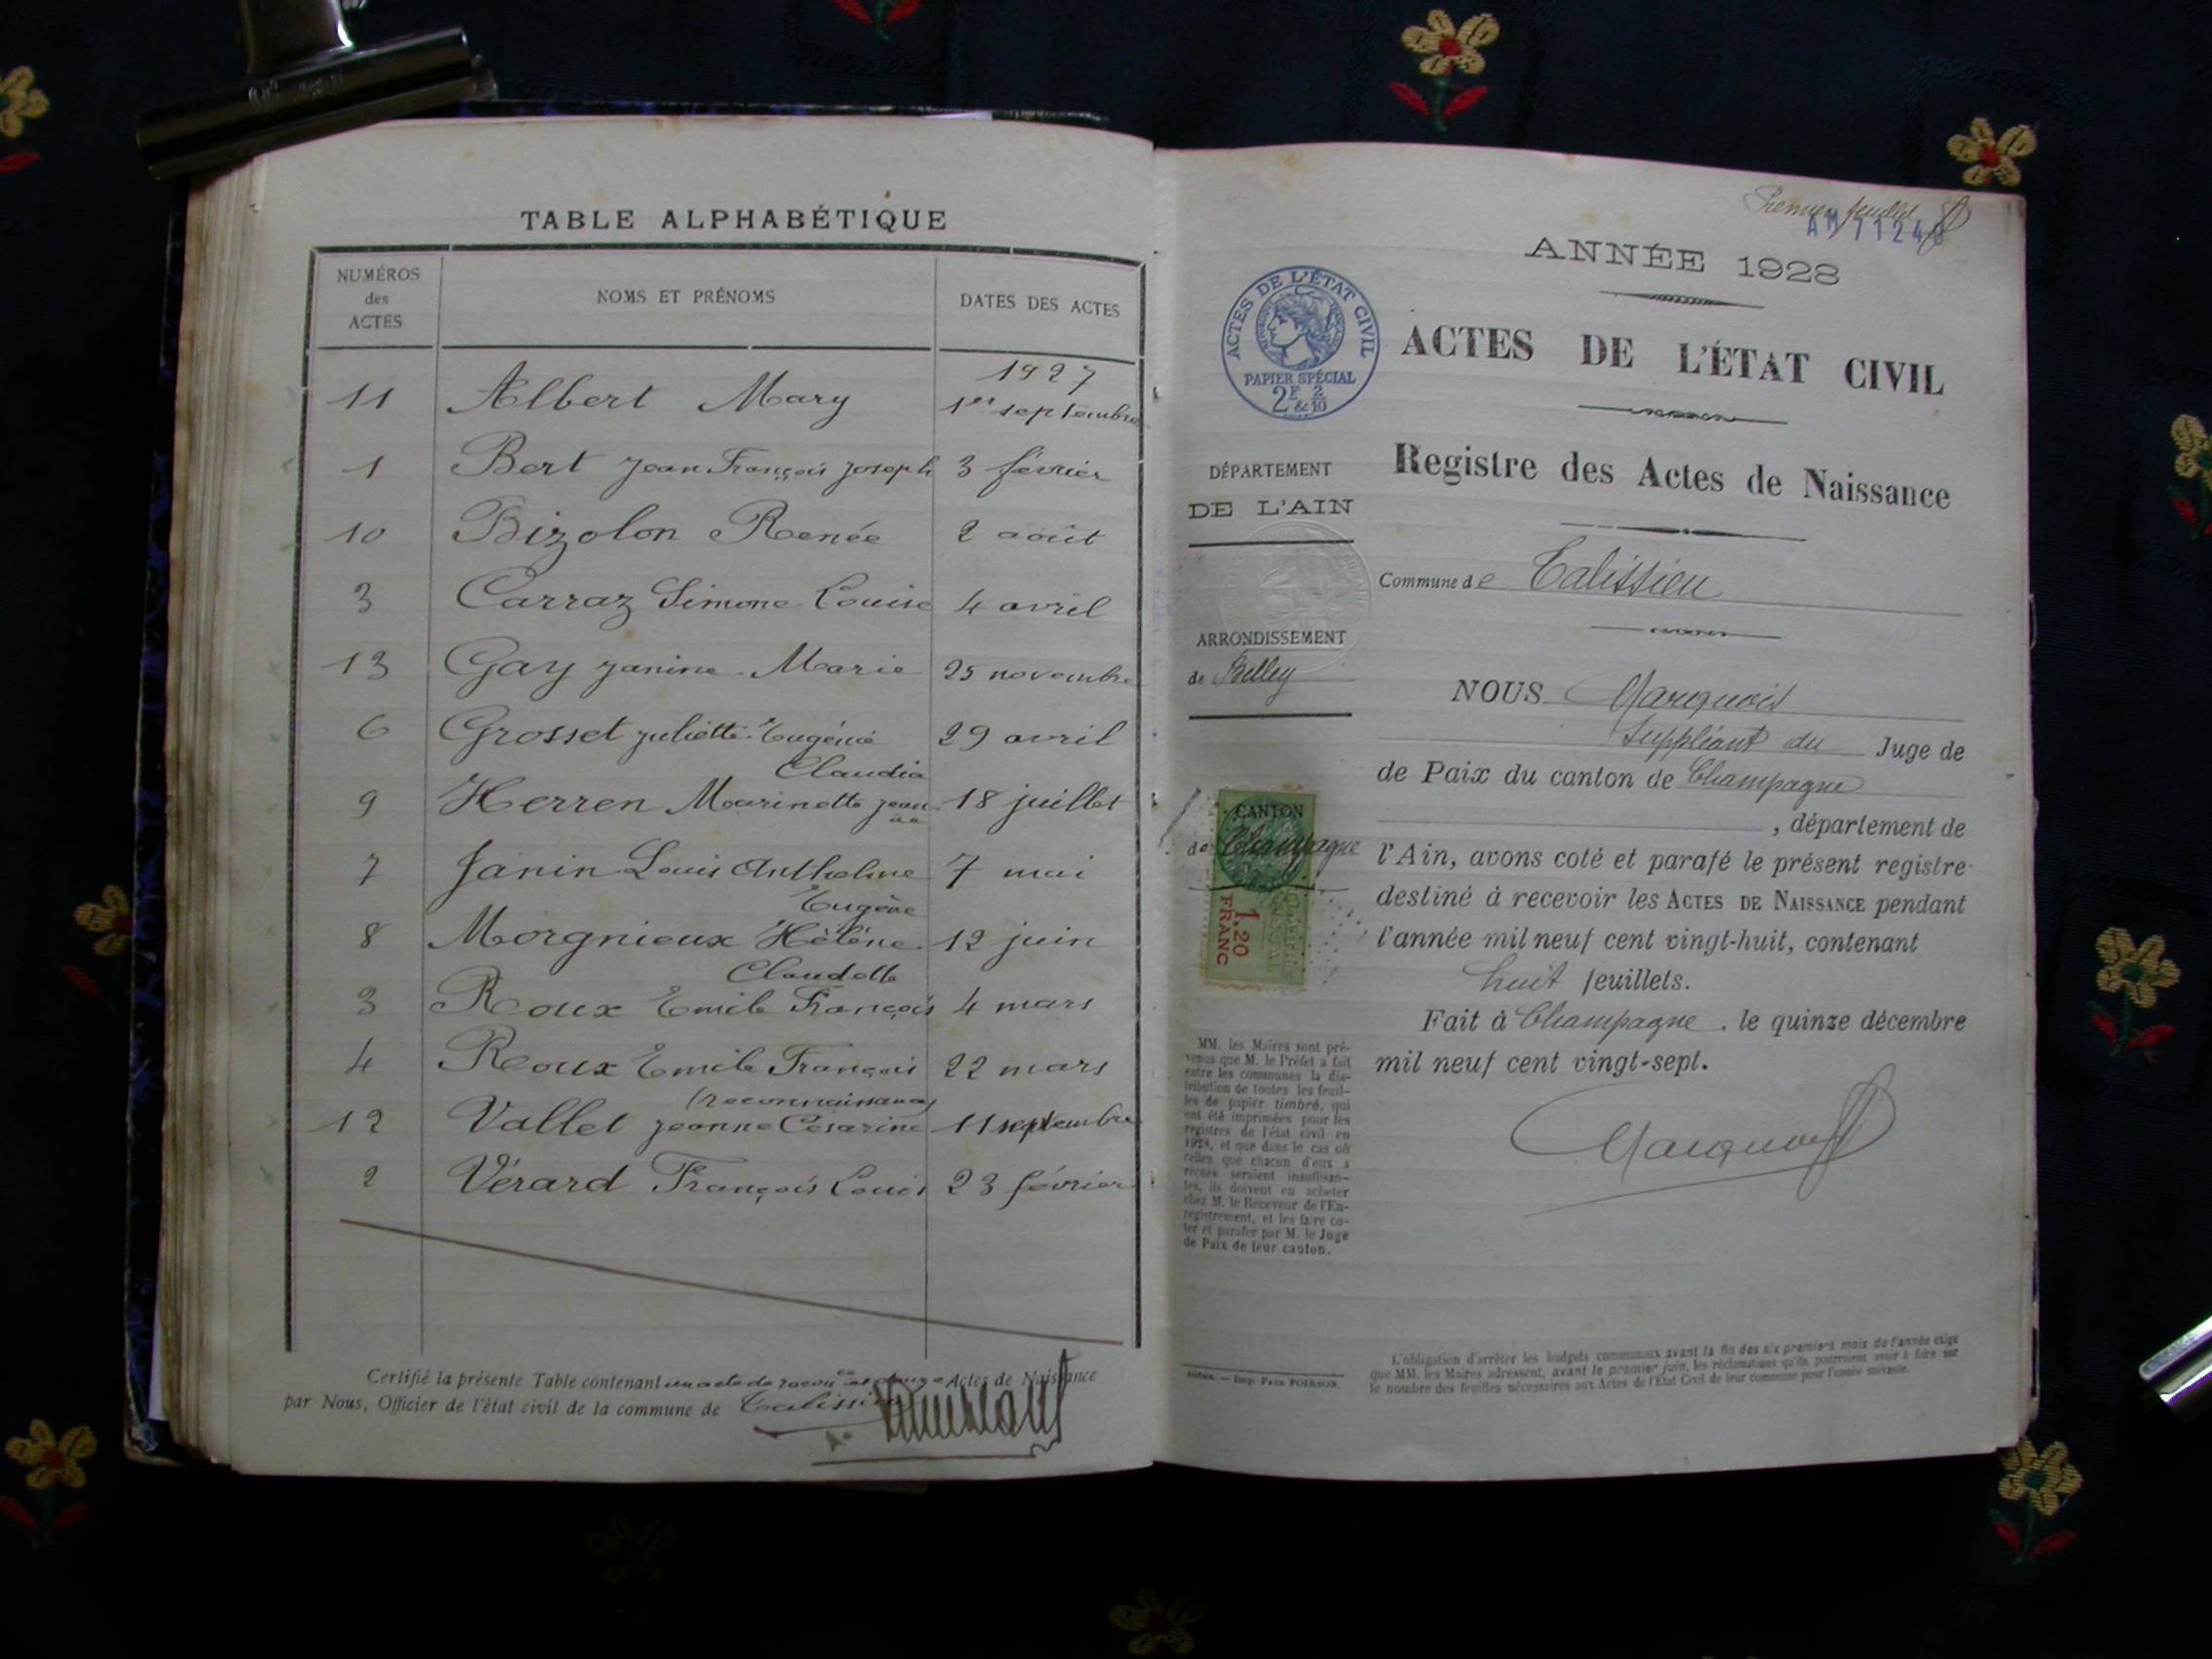 TABLE ALPHABÉTIQUE
NUMÉROS
des
ACTES
NOMS ET PRÉNOMS
DATES DES ACTES
1927
11 Albert Mary 1er septembre
1 Bert Jean François Joseph 3 février
10 Bizolon Renée 2 août
3 Carraz Simone Louise 4 avril
13 Gay Janine Marie 25 novembre
6 Grosset Juliette Eugénie 29 avril
Claudia
9 Herren Marinette Jean 18 juillet
ne
7 Janin Louis Anthelme 7 mai
Eugène
8 Morgnieux Hélène 12 juin
Claudette
3 Roux Emile François 4 mars
4 Roux Emile François 22 mars
(reconnaissance)
12 Vallet Jeanne Césarine 11 septembre
2 Vérard François Louis 23 février
Certifié la présente Table contenant un acte de et douze Actes de Naissance
par Nous, Officier de l'état civil de la commune de Talissieu
Premier feuillet
AM 71248
ANNÉE 1928
ACTES DE L'ÉTAT CIVIL
PAPIER SPÉCIAL
2F & 2/10
ACTES DE L'ÉTAT CIVIL
Registre des Actes de Naissance
DÉPARTEMENT
DE L'AIN
Commune de Talissieu
ARRONDISSEMENT
de Belley
NOUS Marquois
Suppléant du Juge de
de Paix du canton de Champagne
, département de
CANTON
de Champagne
1.20
FRANC
l'Ain, avons coté et parafé le présent registre
destiné à recevoir les ACTES DE NAISSANCE pendant
l'année mil neuf cent vingt-huit, contenant
huit feuillets.
Fait à Champagne, le quinze décembre
mil neuf cent vingt-sept.
Marquois
MM. les Maires sont pré-
venus que M. le Préfet a fait
entre les communes la dis-
tribution de toutes les feuil-
les de papier timbré, qui
ont été imprimées pour les
registres de l'état civil en
1928, et que dans le cas où
celles que chacun d'eux a
reçues seraient insuffisan-
tes, ils doivent en acheter
chez M. le Receveur de l'En-
registrement, et les faire co-
ter et parafer par M. le Juge
de Paix de leur canton.
Imp. PAUL POIRSON.
L'obligation d'arrêter les budgets communaux avant la fin des six premiers mois de l'année exige
que MM. les Maires adressent, avant le premier juin, les réclamations qu'ils pourraient avoir à faire sur
le nombre des feuilles nécessaires aux Actes de l'État Civil de leur commune pour l'année suivante.